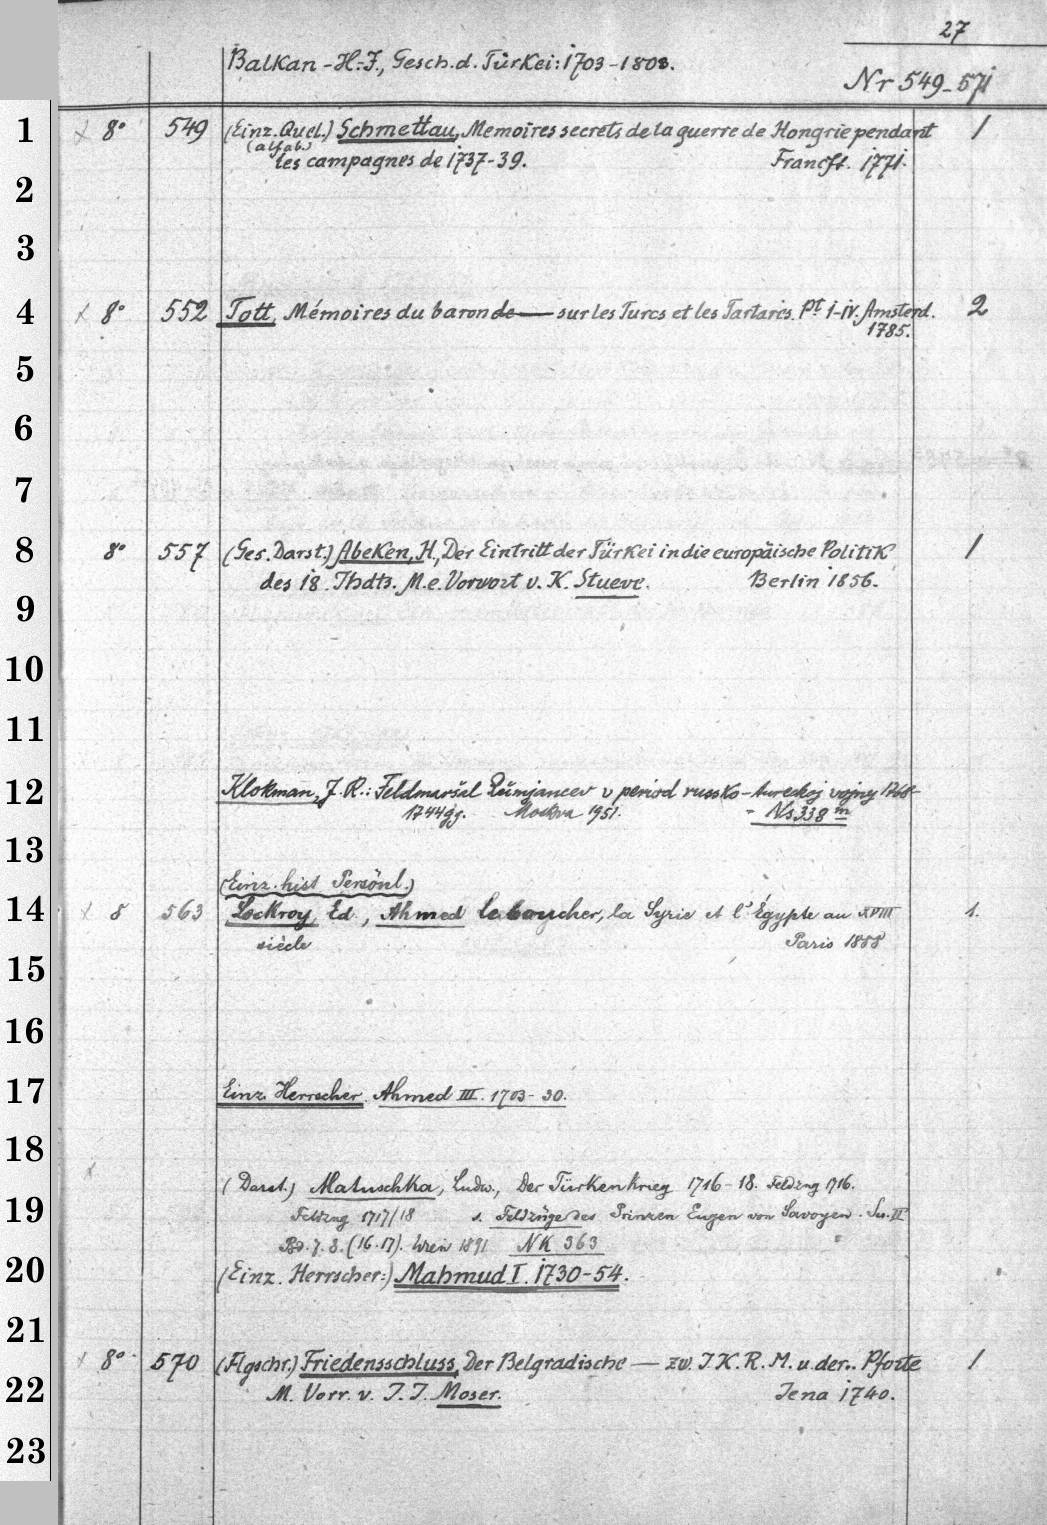 27
Balkan-H.-J., Gesch. d. Türkei: 1703-1808.
Nr 549-571
1 x 8° 549 (Einz. Quel.) Schmettau, Memoires secrets de la guerre de Hongrie pendant 1
(alfab.)
les campagnes de 1737-39. Francft. 1771.
2
3
4 x 8° 552 Tott, Mémoires du baron de — sur les Turcs et les Tartares. Pt. I-IV. Amsterd. 2
1785.
5
6
7
8 8° 557 (Ges. Darst.) Abeken, H., Der Eintritt der Türkei in die europäische Politik 1
des 18. Jhdts. M. e. Vorwort v. K. Stueve. Berlin 1856.
9
10
11
12 Klokman, J. R.: Feldmaršal Rumjancev v period russko-tureckoj vojny 1768-
1744 gg. Moskva 1951. - Ns 338 m
13
(Einz. hist Persönl.)
14 x 8 563 Lockroy, Ed., Ahmed le boucher, la Syrie et l'Égypte au XVIII 1.
siècle Paris 1888
15
16
17 Einz. Herrscher. Ahmed III. 1703-30.
18
x
(Darst.) Matuschka, Ludw., Der Türkenkrieg 1716-18. Feldzug 1716.
19 Feldzug 1717/18 s. Feldzüge des Prinzen Eugen von Savoyen. Ser. II
Bd. 7. 8. (16.17). Wien 1891 NK 363
20 (Einz. Herrscher:) Mahmud I. 1730-54.
21
x 8° 570 (Flgschr.) Friedensschluss, Der Belgradische — zw. I. K. R. M. u. der.. Pforte 1
22 M. Vorr. v. J. J. Moser. Jena 1740.
23